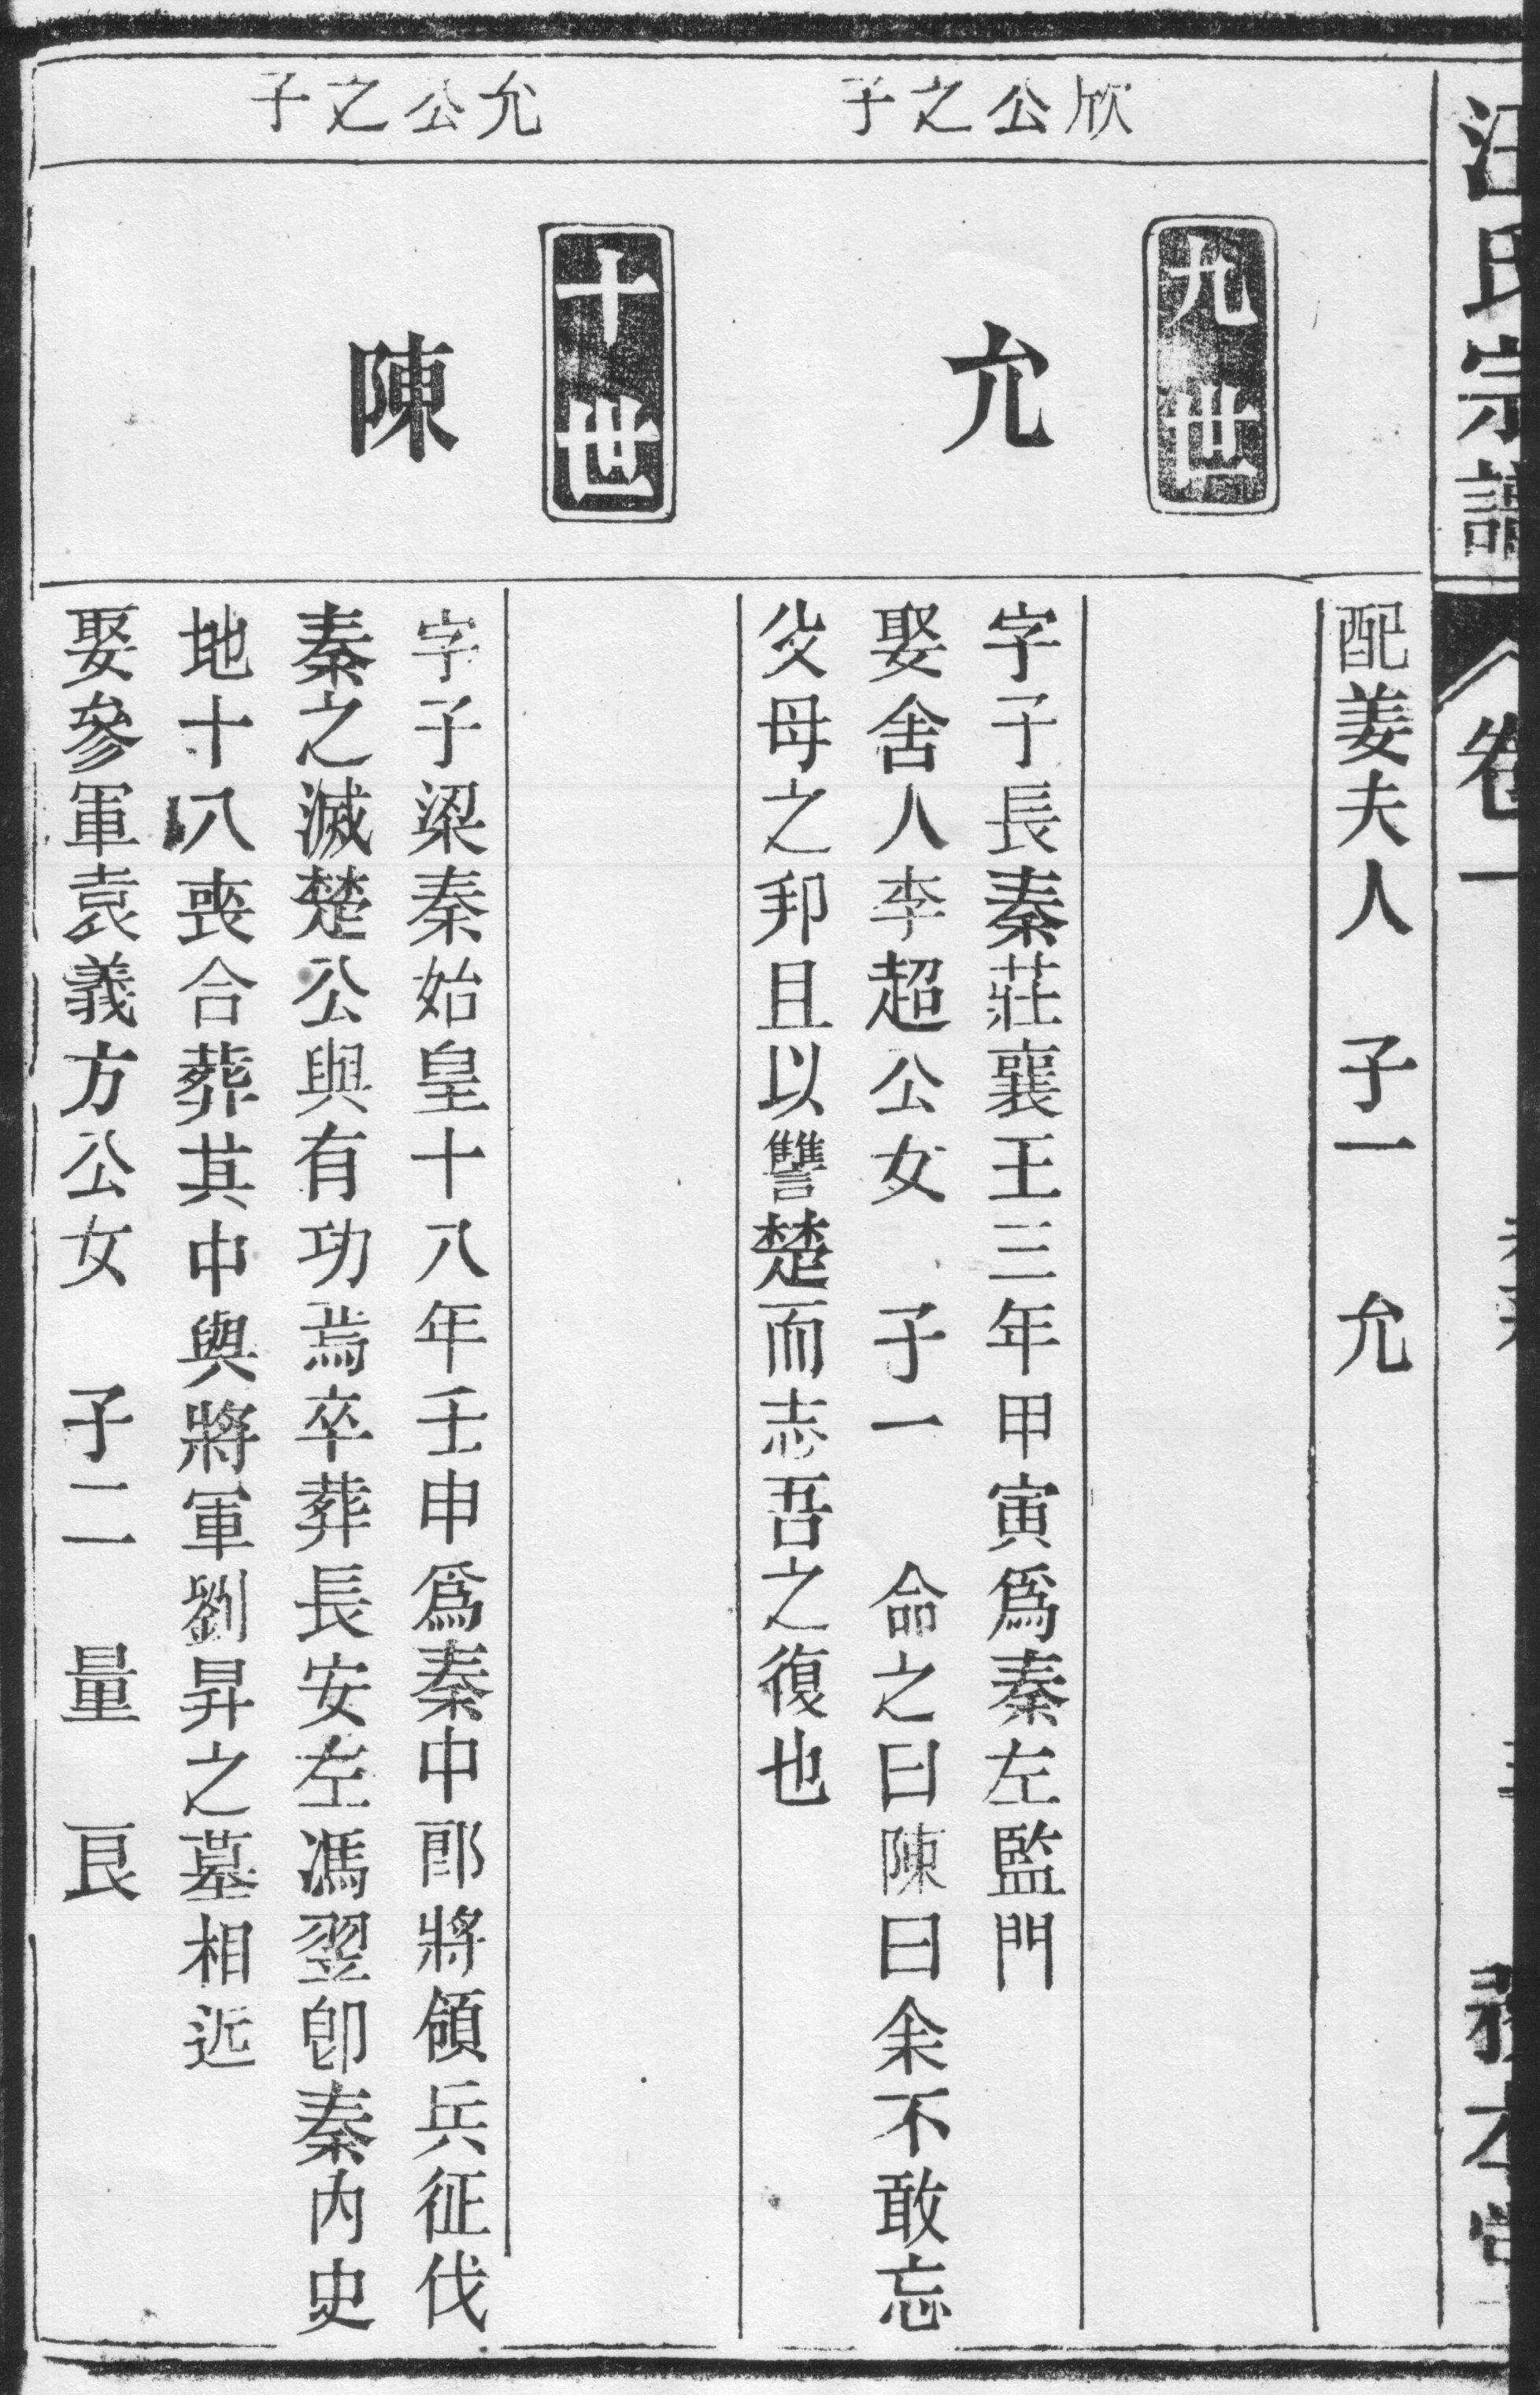 汪氏宗譜
卷一
務本堂
配姜夫人　子一　允
欣公之子
九世
允
字子長秦莊襄王三年甲寅爲秦左監門
娶舍人李超公女　子一　命之曰陳曰余不敢忘
父母之邦且以讐楚而志吾之復也
允公之子
十世
陳
字子梁秦始皇十八年壬申爲秦中郎將領兵征伐
秦之滅楚公與有功焉卒葬長安左馮翌卽秦內史
地十八喪合葬其中與將軍劉昇之墓相近
娶參軍袁義方公女　子二　量　良